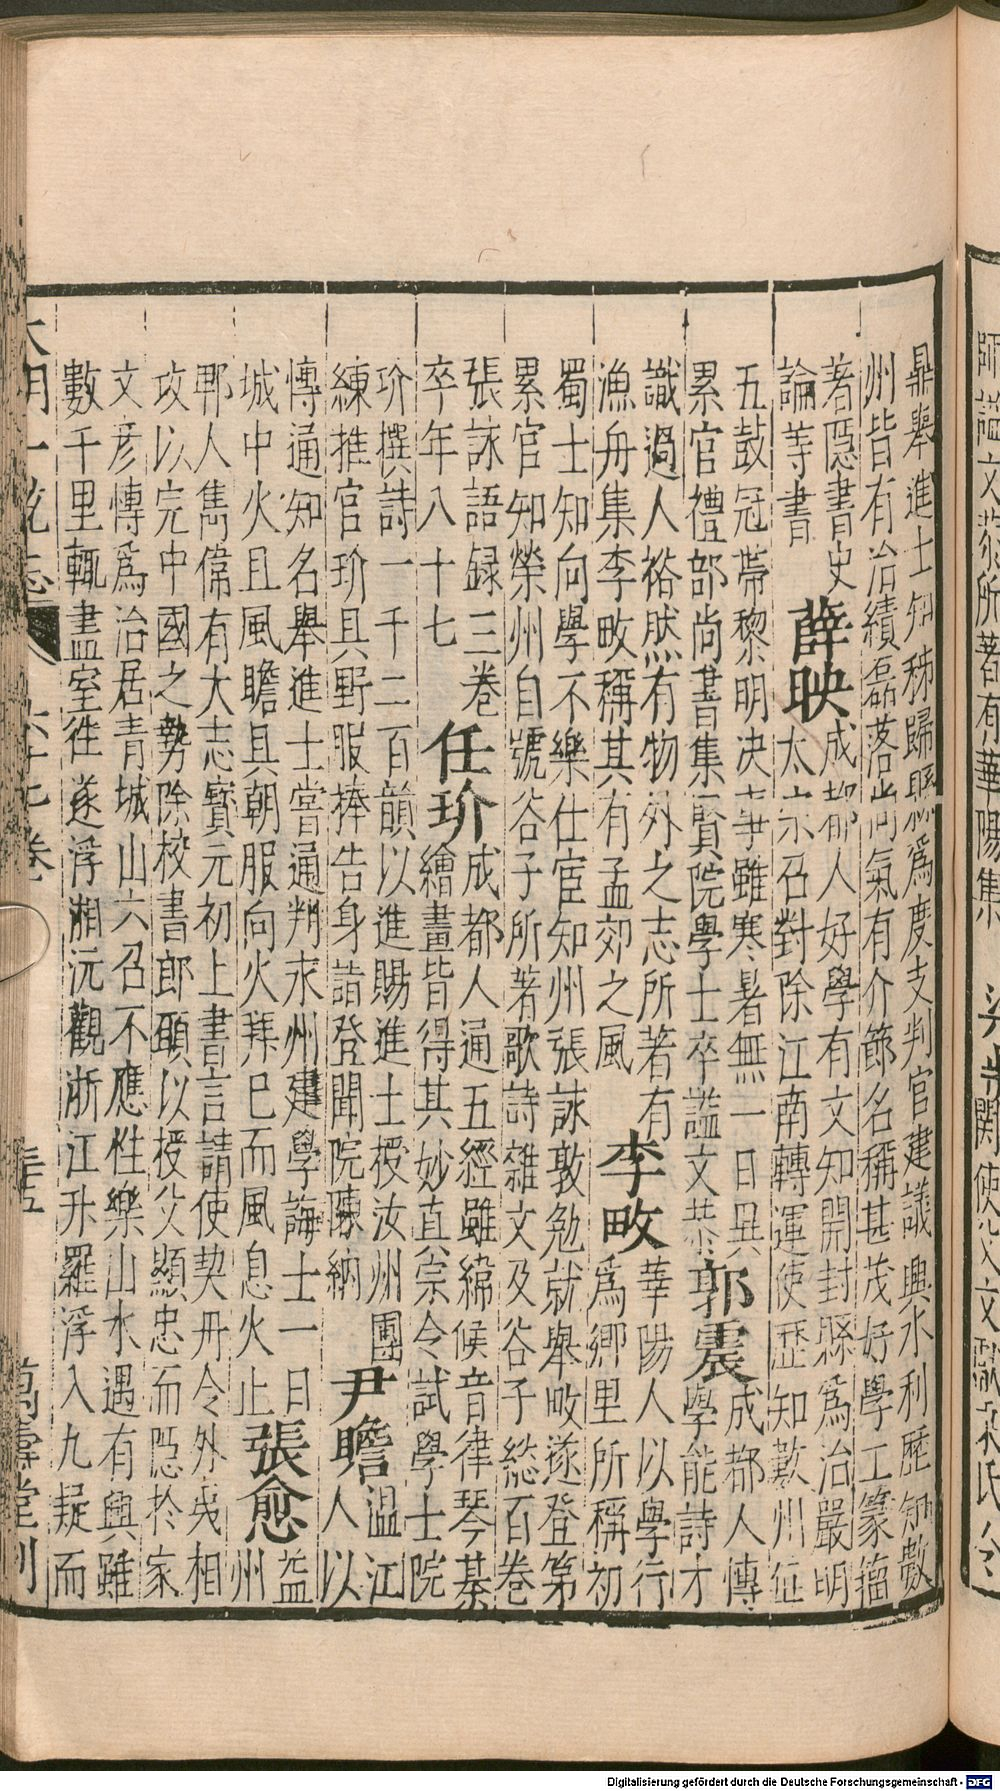 師謚文恭所著有華陽集
鼎舉進士知秭歸縣為度支判官建議興水利歷知數
州皆有治績磊落尚氣有介節名稱甚茂好學工篆籀
著隱書史
論等書
薛映
成都人好學有文知開封縣為治嚴明
太宗召對除江南轉運使歷知數州
五鼓冠帶黎明決事雖寒暑無一日異
累官禮部尚書集賢院學士卒謚文恭
郭震
成都人博
學能詩才
識過人裕然有物外之志所著有
漁舟集李畋稱其有孟郊之風
李畋
華陽人以學行
為鄉里所稱初
蜀士知向學不樂仕宦知州張詠敦勉就舉畋遂登第
累官知榮州自號谷子所著歌詩雜文及谷子総百卷
張詠語録三卷
卒年八十七
任玠
成都人通五經雖緯候音律琴棊
繪畫皆得其妙真宗令試學士院
玠撰詩一千二百韻以進賜進士授汝州團
練推官玠具野服捧告身詣登聞院陳納
尹瞻
溫江
人以
博通知名舉進士嘗通判永州建學誨士一日
城中火且風瞻具朝服向火拜巳而風息火止
張愈
益
州
郫人雋偉有大志寶元初上書言請使契丹令外夷相
攻以完中國之勢除校書郎願以授父顯忠而隱於家
文彦博為治居青城山六召不應性樂山水遇有興雖
數千里輒盡室往遂浮湘沅觀浙江升羅浮入九疑而
大明一統志
六十七卷
三十五
萬壽堂刊
Digitalisierung gefördert durch die Deutsche Forschungsgemeinschaft - DFG